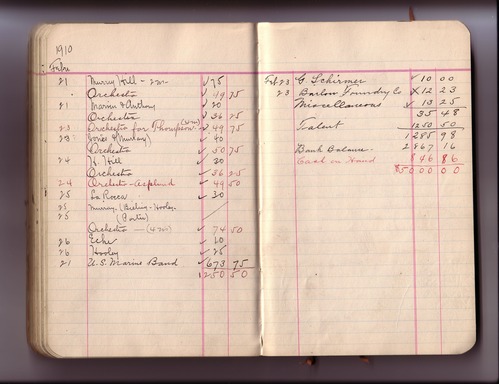 1910
Febre
21 Murry Hill - 2 ✓ 75
Orchestra ✓ 49 75
21 Marvin & Anthony ✓ 20
Orchestra ✓ 36 25
23 Orchestra for Thompson ✓ 49 75
23 Jones & Murray) ✓ 40
Orchestra ✓ 50 75
24 H. Hill ✓ 30
Orchestra ✓ 36 25
24 Orchestra - Asplund ✓ 49 50
25 La Rocca ✓ 30
25 Murray. (Bieling - Hooley.
25 (Porter)
Orchestra - ✓ 74 50
26 Eche ✓ 10
26 Hooley ✓ 25
21 U.S. Marine Band ✓ 673 75
1250 50
Feb 23 G. Schirmer ✓ 10 00
23 Barlow Foundry Co ✓ 12 23
Miscellaneous ✓ 13 25
35 48
Talent 1250 50
1285 98
Bank Balance 2867 16
Cash on Hand 846 86
$5000 00